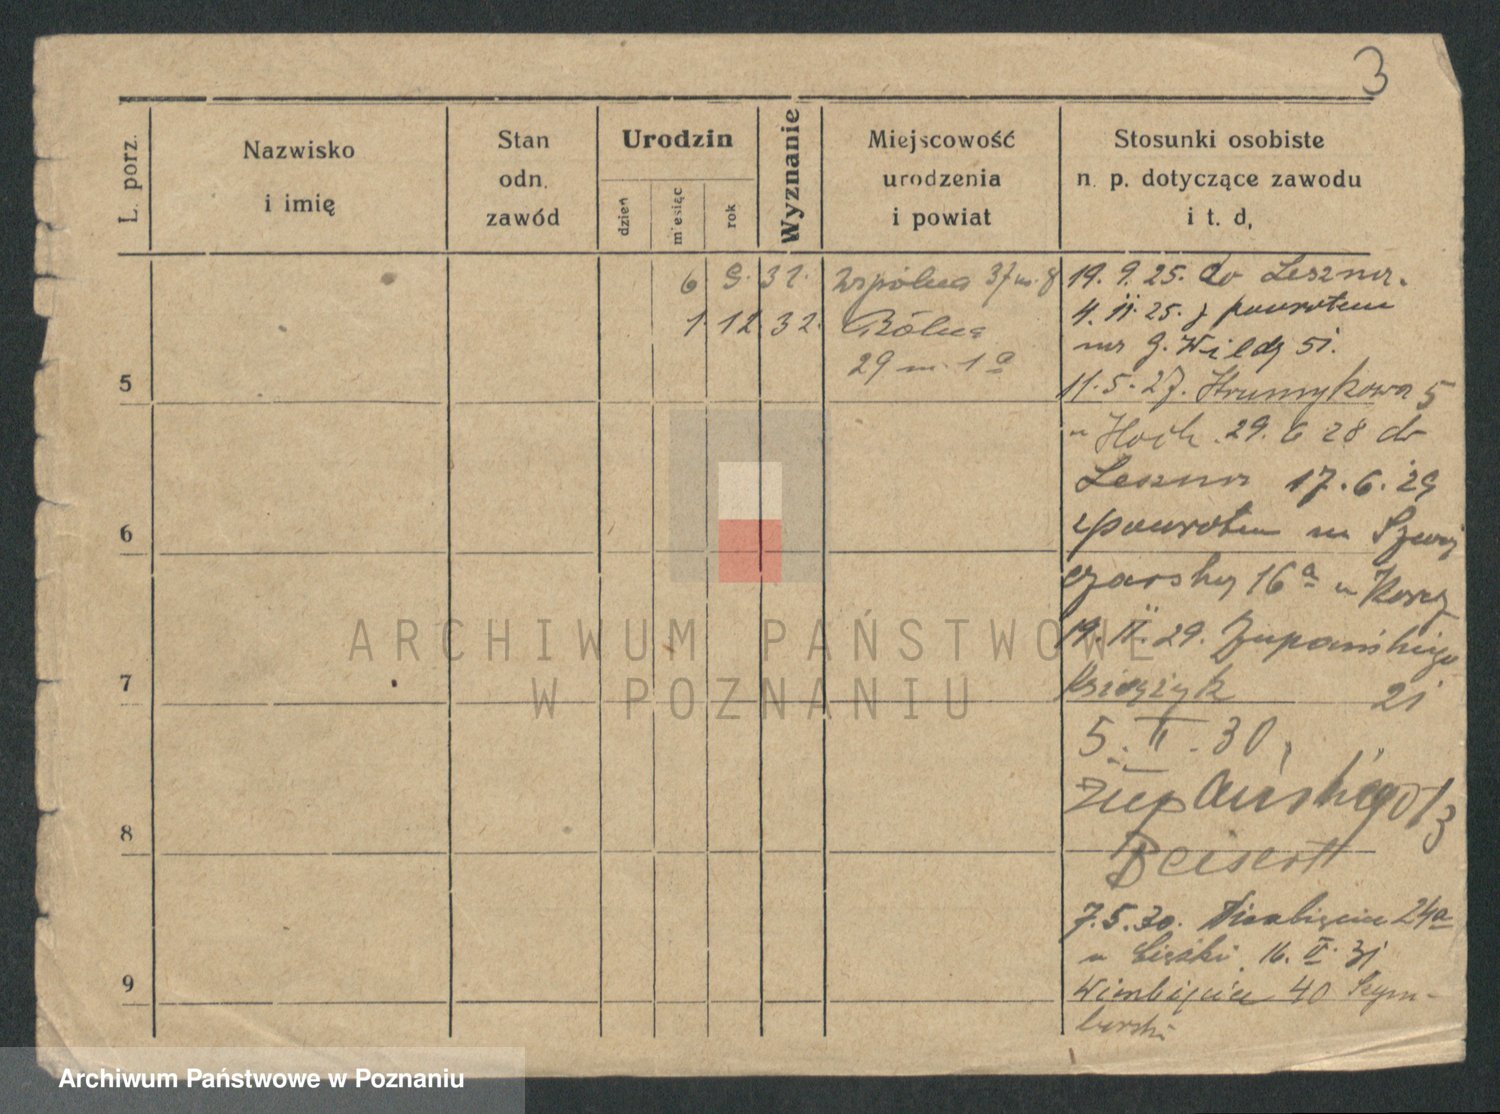 3
L. porz.
Nazwisko
i imię
Stan
odn.
zawód
Urodzin
dzień
miesiąc
rok
Wyznanie
Miejscowość
urodzenia
i powiat
Stosunki osobiste
n. p. dotyczące zawodu
i t. d.
6 9. 32. Wspólna 37 m. 8
1. 12. 32. Rólna
29 m. 1a
19. 9. 25. do Leszna.
4. II. 25. z powrotem
na G. Wildę 51.
11. 5. 27. 5
29. 6 28 do
Leszna 17. 6. 29
z powrotem na
16a u
19. II. 29. Żupańskiego
Księżyk 21
5. II. 30
Żupańskiego
7. 5. 30. Wierzbięcice 24a
16. II. 31
Wierzbięcice 40 Szym-
borski
5
6
7
8
9
ARCHIWUM PAŃSTWOWE
W POZNANIU
Archiwum Państwowe w Poznaniu